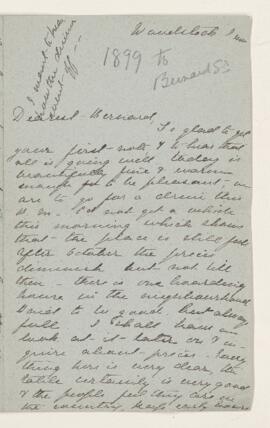 I want to hear
how the dinner
went off --
Woodstock Inn
1899 to
Bernard Sr
Dearest Bernard,
So glad to get
your first note & to hear that
all is going well today is
beautifully fine & warm
enough to be pleasant; we
are to go for a drive this
P.M. Cd not get a vehicle
this morning which shows
that the place is still full
After October the prices
diminish but not till
then - there is one boarding
house in the neighbourhood
said to be good but always
full. I shall have a
look at it later on & in-
quire about prices - Every
thing here is very dear, the
table certainly is very good
& the people
the country keep early hours